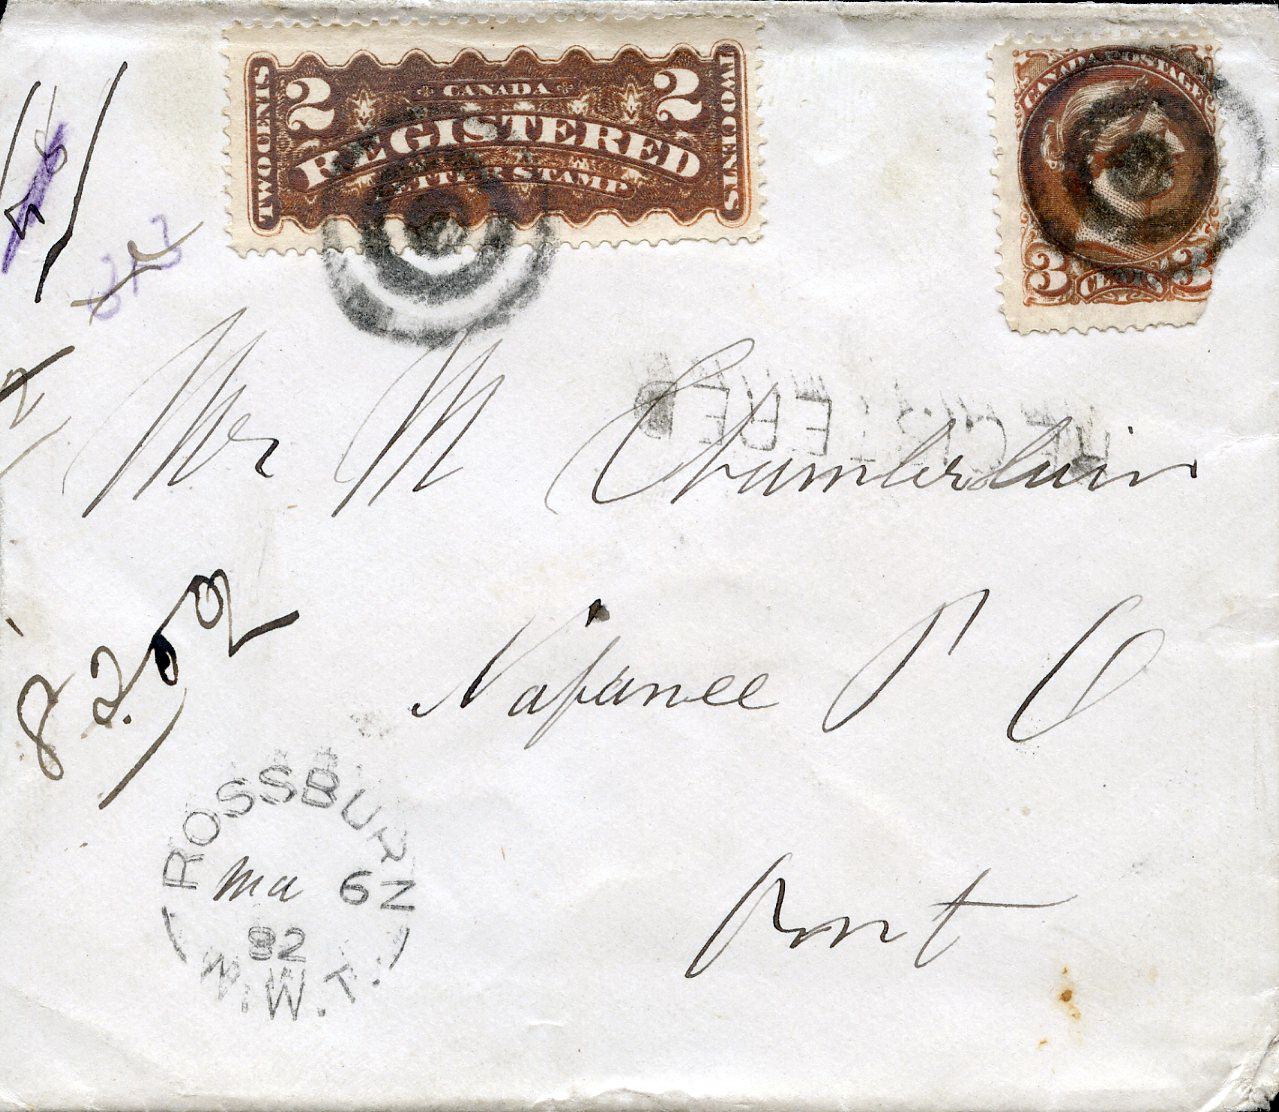 TWO CENTS 2 CANADA 2 TWO CENTS
REGISTERED
LETTER STAMP
CANADA POSTAGE
3 CENTS 3
REGISTERED
Mr M Chamberlain
Napanee P O
Ont
ROSSBURN
Ma 6
82
N.W.T.